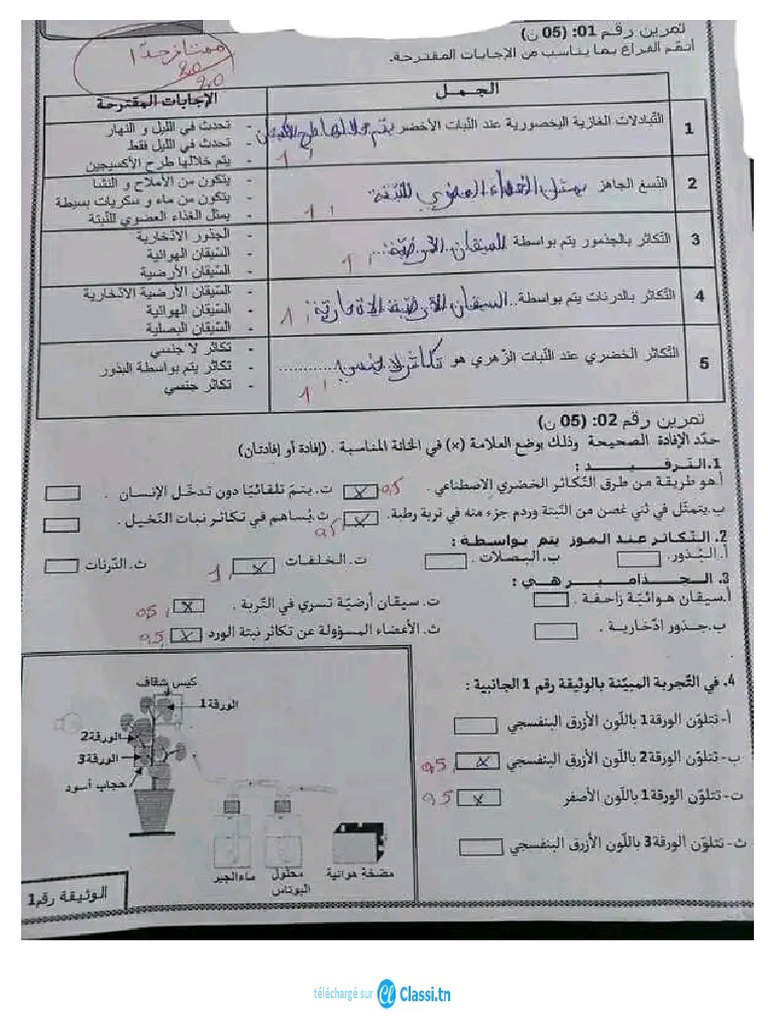 تمرين رقم 01: (05 ن)
أتمم الفراغ بما يناسب من الإجابات المقترحة.
ممتاز جدّا
20
20
الجمل
الإجابات المقترحة
1
التبادلات الغازية اليخضورية عند النبات الأخضر يتم خلالها طرح الأكسجين
1
- تحدث في الليل و النهار
- تحدث في الليل فقط
- يتم خلالها طرح الأكسيجين
2
النسغ الجاهز يمثل الغذاء العضوي للنبتة
1
- يتكون من الأملاح و النشا
- يتكون من ماء و سكريات بسيطة
- يمثل الغذاء العضوي للنبتة
3
التكاثر بالجذمور يتم بواسطة السيقان الأرضيّة...
1
- الجذور الادخارية
- السّيقان الهوائية
- السّيقان الأرضية
4
التكاثر بالدرنات يتم بواسطة..السيقان الأرضية الادخاريّة
1
- السّيقان الأرضية الادّخارية
- السّيقان الهوائية
- السّيقان البصلية
5
التّكاثر الخضري عند النّبات الزّهري هو تكاثر لا جنسي............
1
- تكاثر لا جنسي
- تكاثر يتم بواسطة البذور
- تكاثر جنسي
تمرين رقم 02: (05 ن)
حدّد الإفادة الصحيحة وذلك بوضع العلامة (x) في الخانة المناسبة . (إفادة أو إفادتان)
1. الترقيد :
أ.هو طريقة من طرق التّكاثر الخضري الاصطناعي . x 0,5 ت. يتمّ تلقائيّا دون تدخّل الإنسان .
ب.يتمثّل في ثني غصن من النّبتة وردم جزء منه في تربة رطبة. x 0,5 ث.يُساهم في تكاثر نبات النّخيل .
2. التّكاثر عند الموز يتم بواسطة :
أ. البُذور. ب. البصلات . ت. الخلفات x 1 ث. الدّرنات
3. الجذامير هي :
أ.سيقان هوائيّة زاحفة . ت. سيقان أرضيّة تسري في التّربة . x 0,5
ب. جذور ادّخارية . ث. الأعضاء المسؤولة عن تكاثر نبتة الورد x 0,5
4. في التّجربة المبيّنة بالوثيقة رقم 1 الجانبية :
أ- تتلوّن الورقة 1 باللّون الأزرق البنفسجي
ب- تتلوّن الورقة 2 باللّون الأزرق البنفسجي x 0,5
ت- تتلوّن الورقة 1 باللّون الأصفر x 0,5
ث- تتلوّن الورقة 3 باللّون الأزرق البنفسجي
كيس شفاف
الورقة 1
الورقة 2
الورقة 3
حجاب أسود
ماء الجير
محلول البوتاس
مضخة هوائية
الوثيقة رقم 1
téléchargé sur Classi.tn